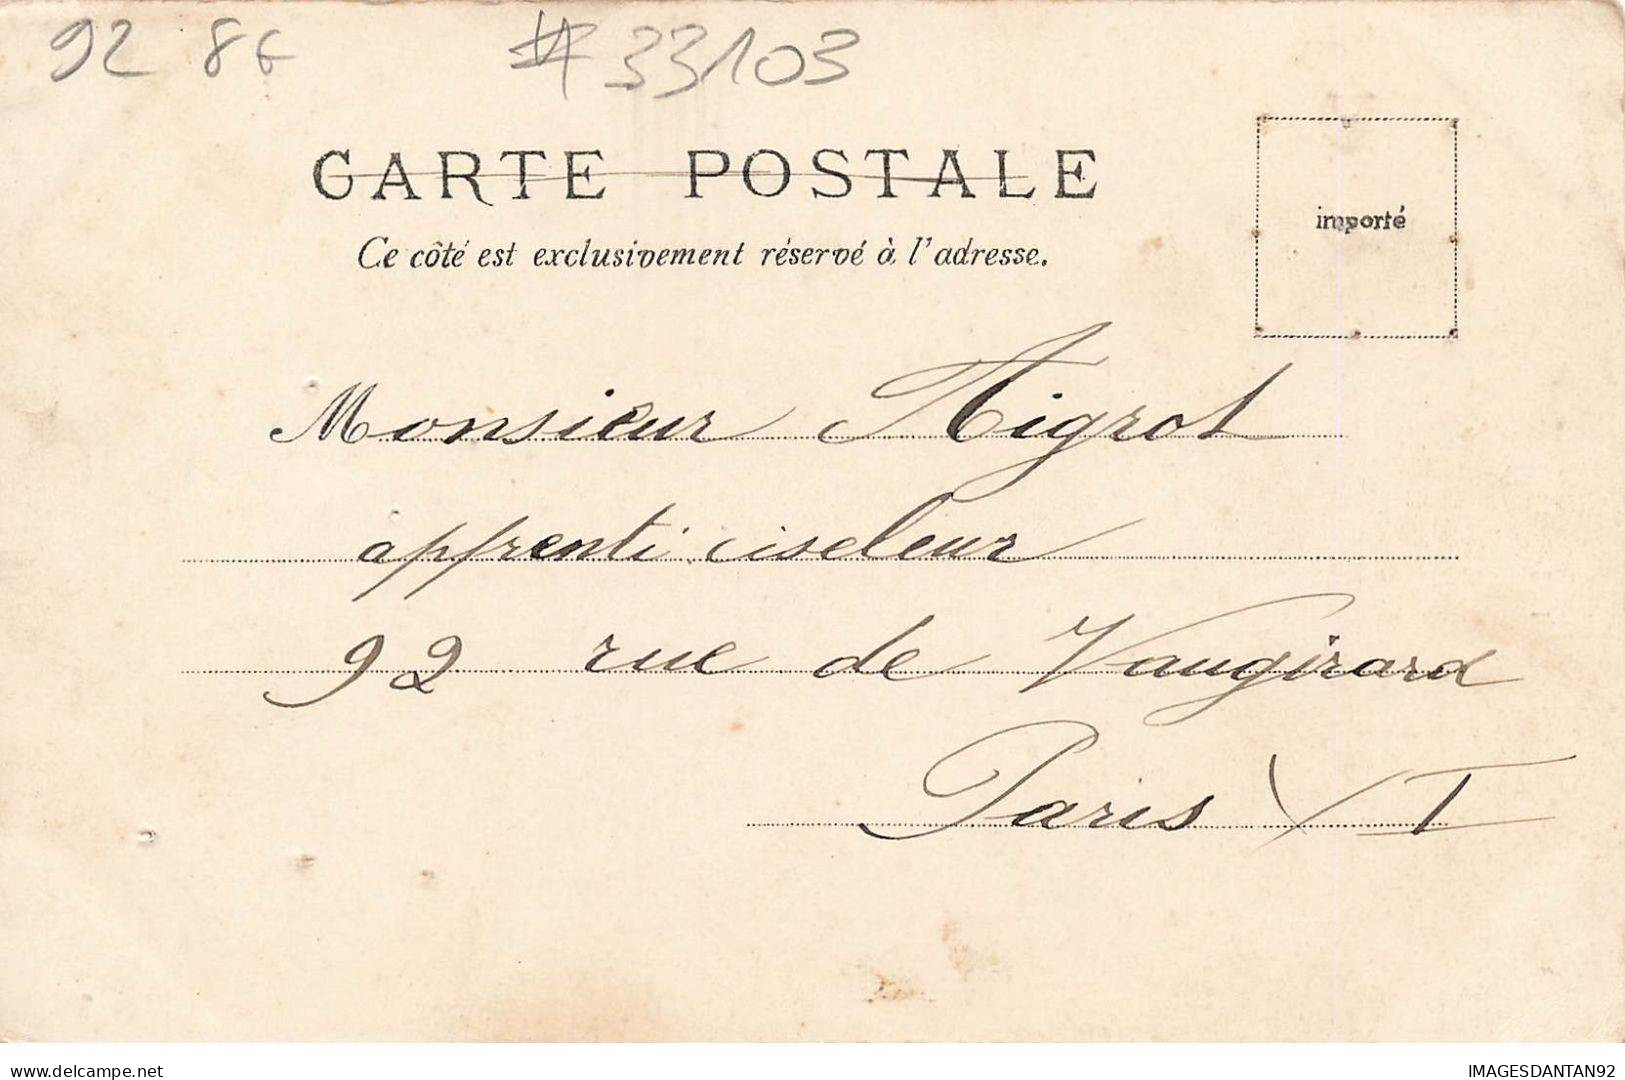 92 8€ #33103
CARTE POSTALE
Ce côté est exclusivement réservé à l'adresse.
importé
Monsieur Tigrot
apprenti ciseleur
92 rue de Vaugirard
Paris XI
delcampe.net
IMAGESDANTAN92